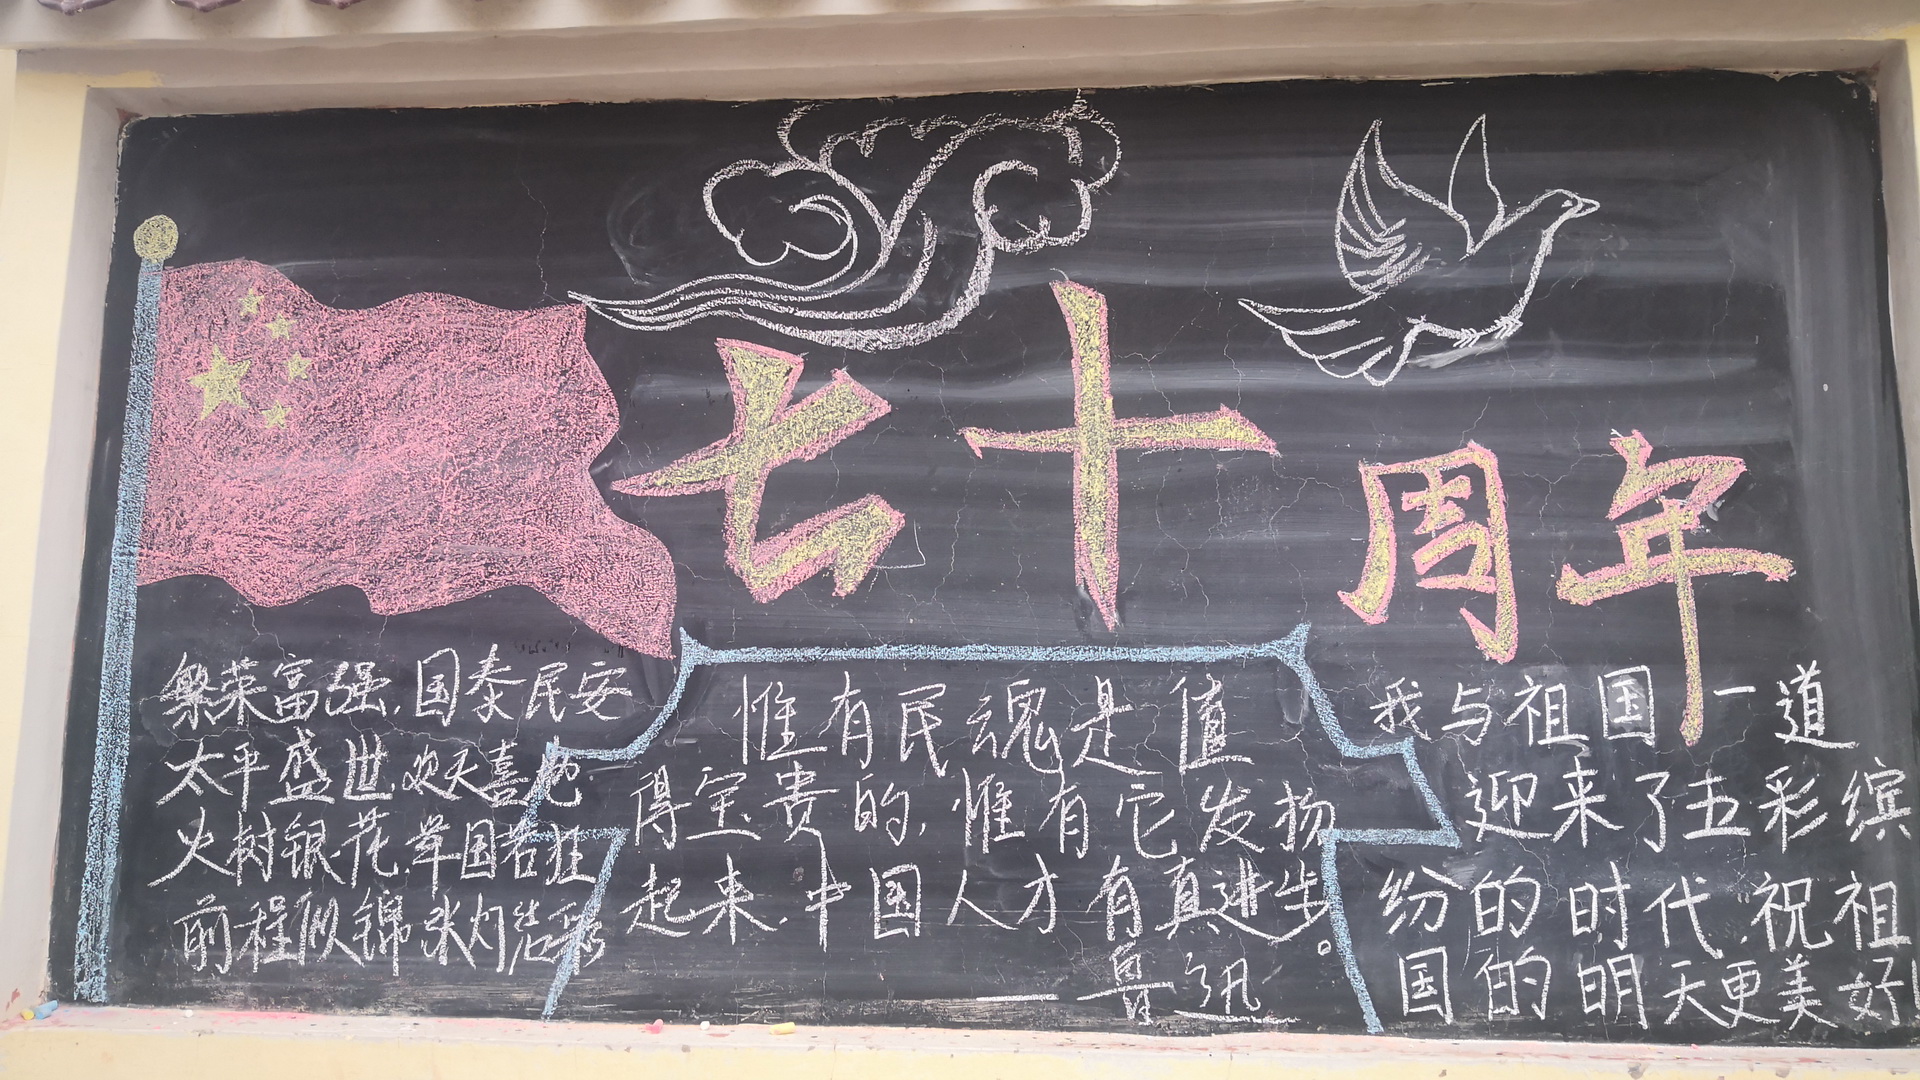 七十周年
繁荣富强,国泰民安
太平盛世,欢天喜地
火树银花,举国若狂
前程似锦,张灯结彩
惟有民魂是值
得宝贵的,惟有它发扬
起来,中国人才有真进步。
——鲁迅
我与祖国一道
迎来了五彩缤
纷的时代,祝祖
国的明天更美好!